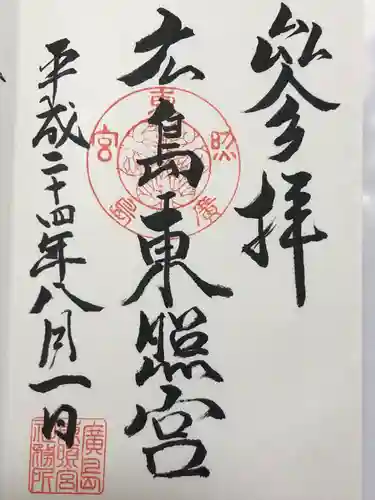 參拝
広島東照宮
平成二十四年八月一日
東照宮廣島
廣島
東照宮
社務所